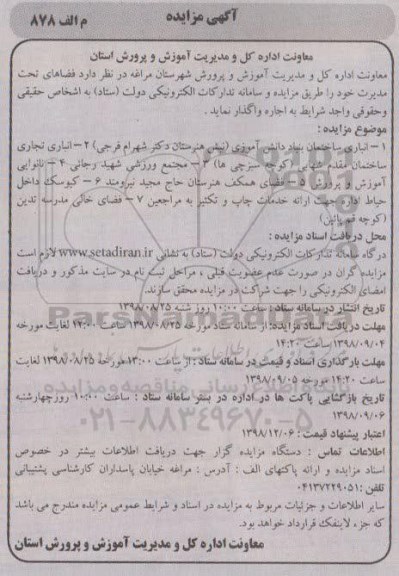 آگهی مزایده
م الف ۸۷۸
معاونت اداره کل و مدیریت آموزش و پرورش استان
معاونت اداره کل و مدیریت آموزش و پرورش شهرستان مراغه در نظر دارد فضاهای تحت
مدیرت خود را طریق مزایده و سامانه تدارکات الکترونیکی دولت (ستاد) به اشخاص حقیقی
وحقوقی واجد شرایط به اجاره واگذار نماید .
موضوع مزایده :
۱ – انباری ساختمان بنیاد دانش آموزی (نبش هنرستان دکتر شهرام فرجی) ۲ – انباری تجاری
ساختمان مقدار شهایی (کوچه سبزچی ها) ۳ – مجتمع ورزشی شهید رجائی ۴ – نانوایی
آموزش و پرورش ۵ – فضای همکف هنرستان حاج مجید نیرومند ۶ – کیوسک داخل
حیاط اداره جهت ارائه خدمات چاپ و تکثیر به مراجعین ۷ – فضای خالی مدرسه تدین
(کوچه قم پائین)
محل دریافت اسناد مزایده :
درگاه سامانه تدارکات الکترونیکی دولت (ستاد) به نشانی www.setadiran.ir لازم است
مزایده گران در صورت عدم عضویت قبلی ، مراحل ثبت نام در سایت مذکور و دریافت
امضای الکترونیکی را جهت شرکت در مزایده محقق سازند.
تاریخ انتشار در سامانه ستاد : ساعت ۱۰:۰۰ روز شنبه ۱۳۹۸/۰۸/۲۵
مهلت دریافت اسناد مزایده: از سامانه ستاد مورخه ۱۳۹۸/۰۸/۲۵ ساعت ۱۷:۰۰ لغایت مورخه
۱۳۹۸/۰۹/۰۴ ساعت ۱۴:۲۰
مهلت بارگذاری اسناد و قیمت در سامانه ستاد : از ساعت ۱۳:۰۰ مورخه ۱۳۹۸/۰۸/۲۵ لغایت
ساعت ۱۴:۲۰ مورخه ۱۳۹۸/۰۹/۰۵
تاریخ بازگشایی پاکت ها در اداره در بستر سامانه ستاد : ساعت ۱۰:۰۰ روز چهارشنبه
۱۳۹۸/۰۹/۰۶
اعتبار پیشنهاد قیمت : ۱۳۹۸/۱۲/۰۶
اطلاعات تماس : دستگاه مزایده گزار جهت دریافت اطلاعات بیشتر در خصوص
اسناد مزایده و ارائه پاکتهای الف : آدرس : مراغه خیابان پاسداران کارشناسی پشتیبانی
تلفن :۰۴۱۳۷۲۲۹۰۵۱
سایر اطلاعات و جزئیات مربوط به مزایده در اسناد و شرایط عمومی مزایده مندرج می باشد
که جزء لاینفک قرارداد خواهد بود.
معاونت اداره کل و مدیریت آموزش و پرورش استان
ParsNamadData
۰۲۱-۸۸۳۴۹۶۷۰-۵